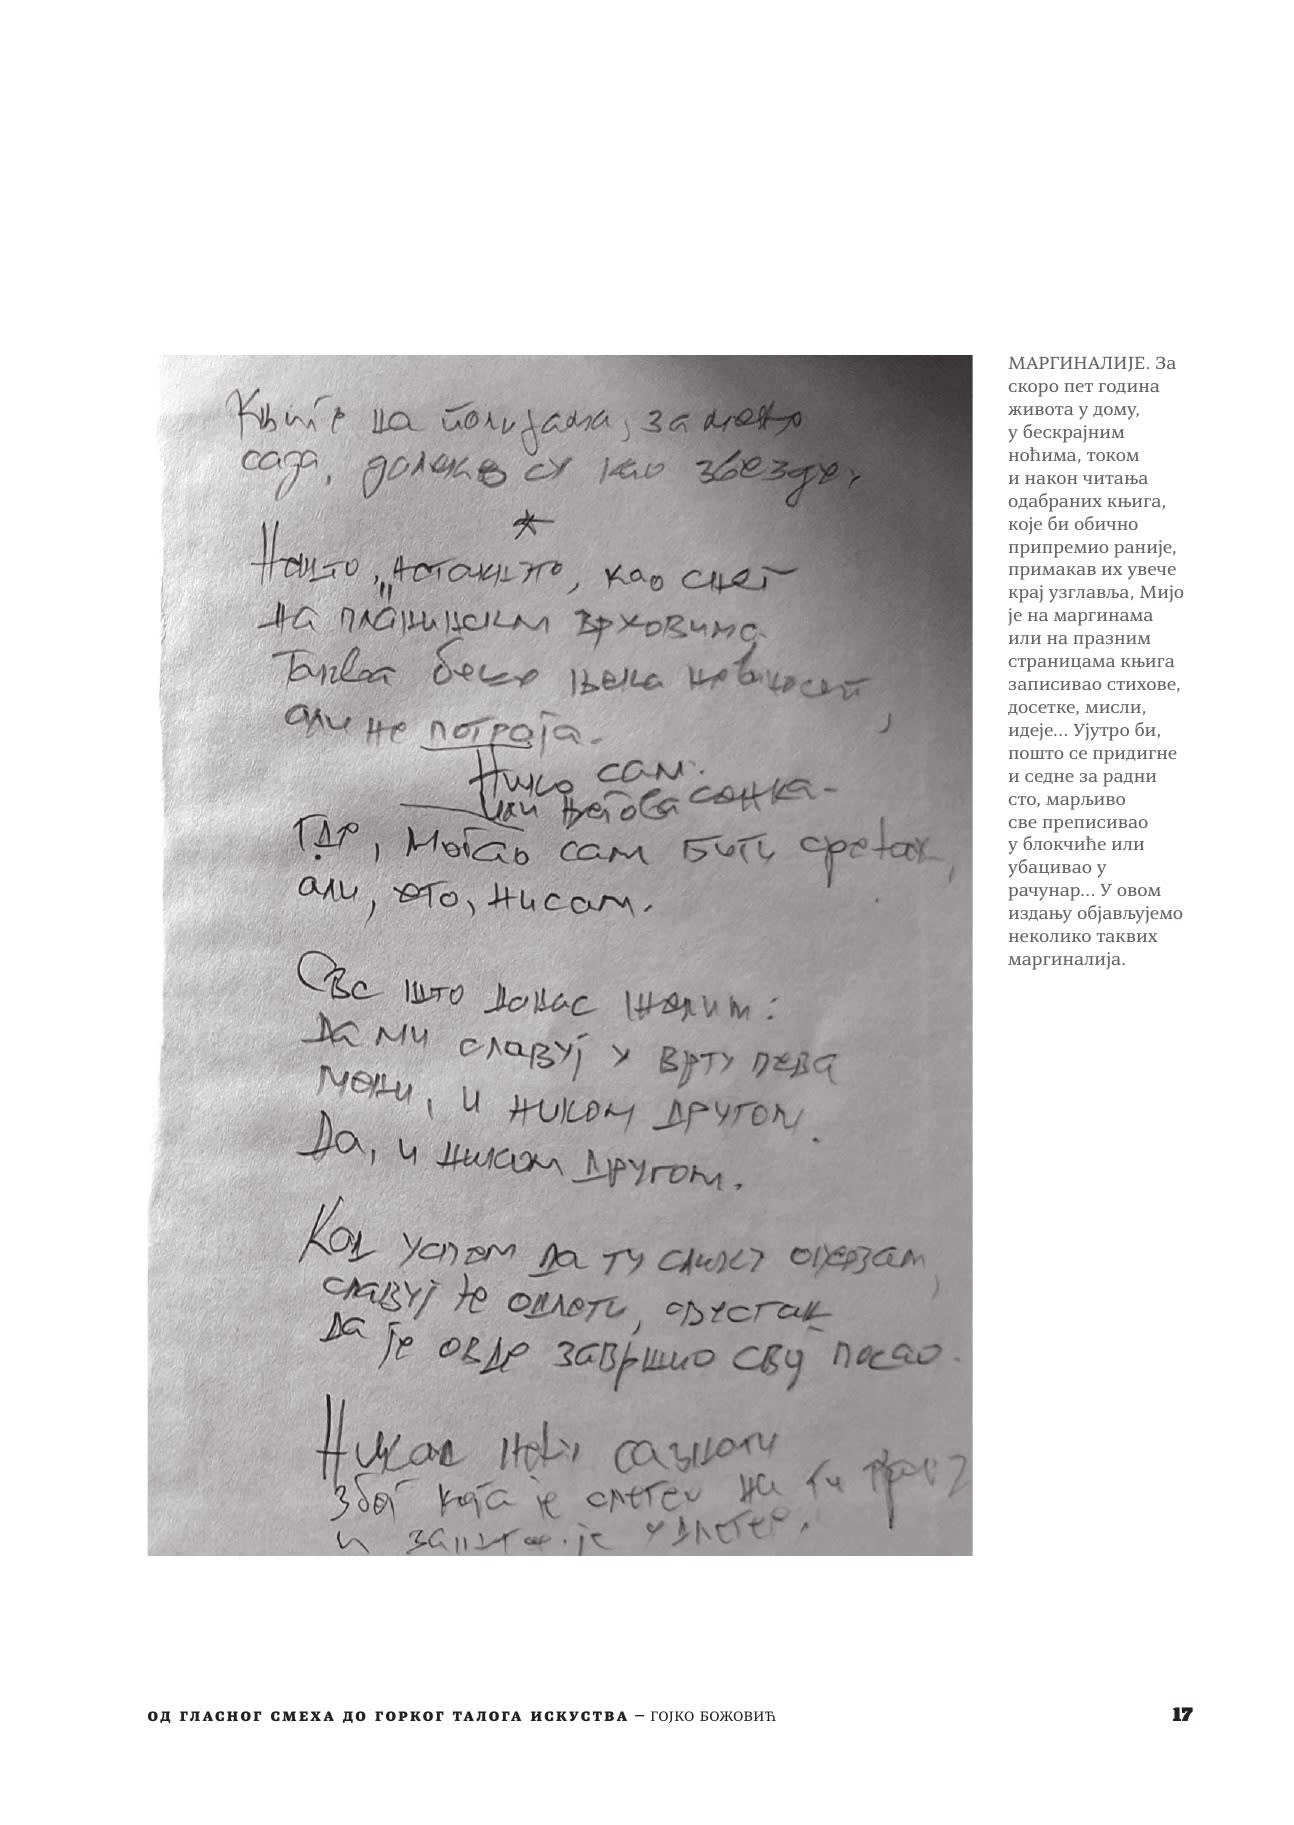 Књиге на полицама, за мене
сада, далеке су као звезде,
*
Нешто нетакнуто, као снег
на планинским врховима.
Таква беше њена невиност,
али не потраја.
Нико сам.
или његова сенка.
Где, могао сам бити срећан,
али, ето, нисам.
Све што данас желим:
Да ми славуј у врту пева
мени, и ником другом.
Да, и ником другом.
Кад успем да ту слику
славуј ће одлети,
да је овде завршио свој посао.
Никад нећу сазнати
због кога је слетео на
и је улетео.
МАРГИНАЛИЈЕ. За
скоро пет година
живота у дому,
у бескрајним
ноћима, током
и након читања
одабраних књига,
које би обично
припремио раније,
примакав их увече
крај узглавља, Мијо
је на маргинама
или на празним
страницама књига
записивао стихове,
досетке, мисли,
идеје... Ујутро би,
пошто се придигне
и седне за радни
сто, марљиво
све преписивао
у блокчиће или
убацивао у
рачунар... У овом
издању објављујемо
неколико таквих
маргиналија.
ОД ГЛАСНОГ СМЕХА ДО ГОРКОГ ТАЛОГА ИСКУСТВА – ГОЈКО БОЖОВИЋ
17